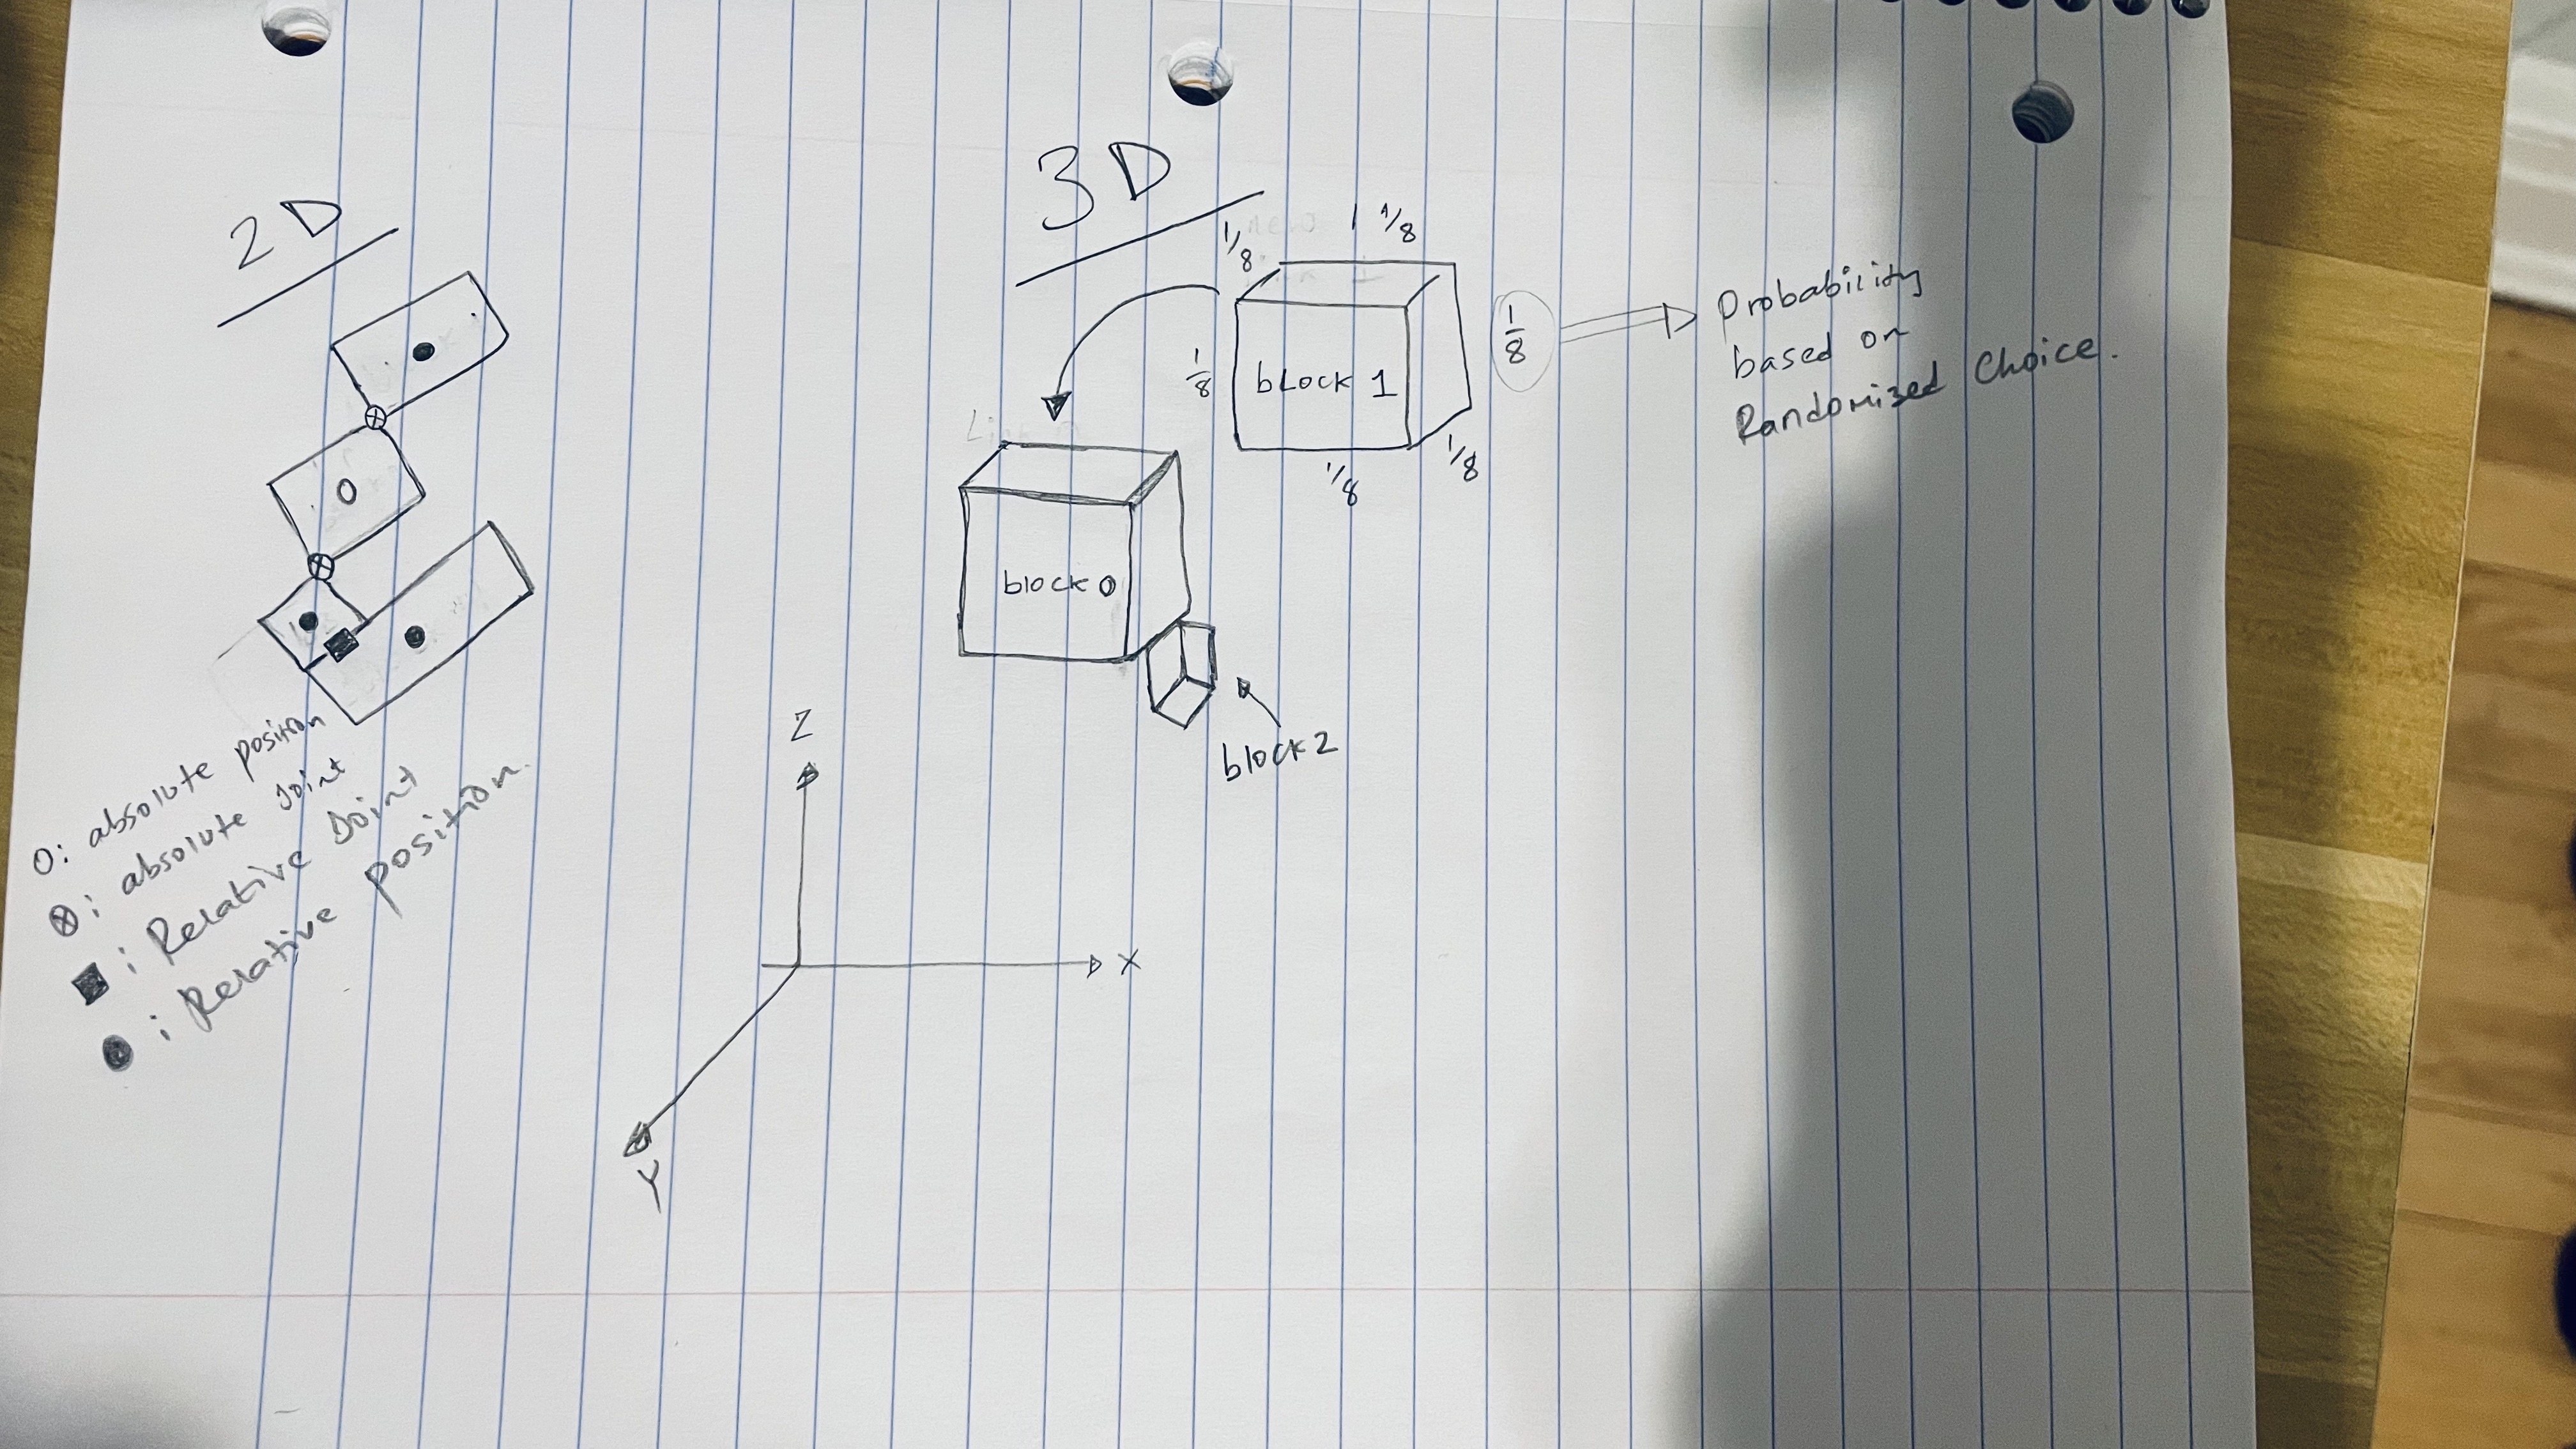 2D
O
O: absolute position
⊗: absolute Joint
■: Relative Joint
●: Relative position.
3D
1/8
1/8
1/8
block 1
1/8
1/8
1/8
Probability
based on
Randomized Choice.
block 0
block 2
Z
X
Y